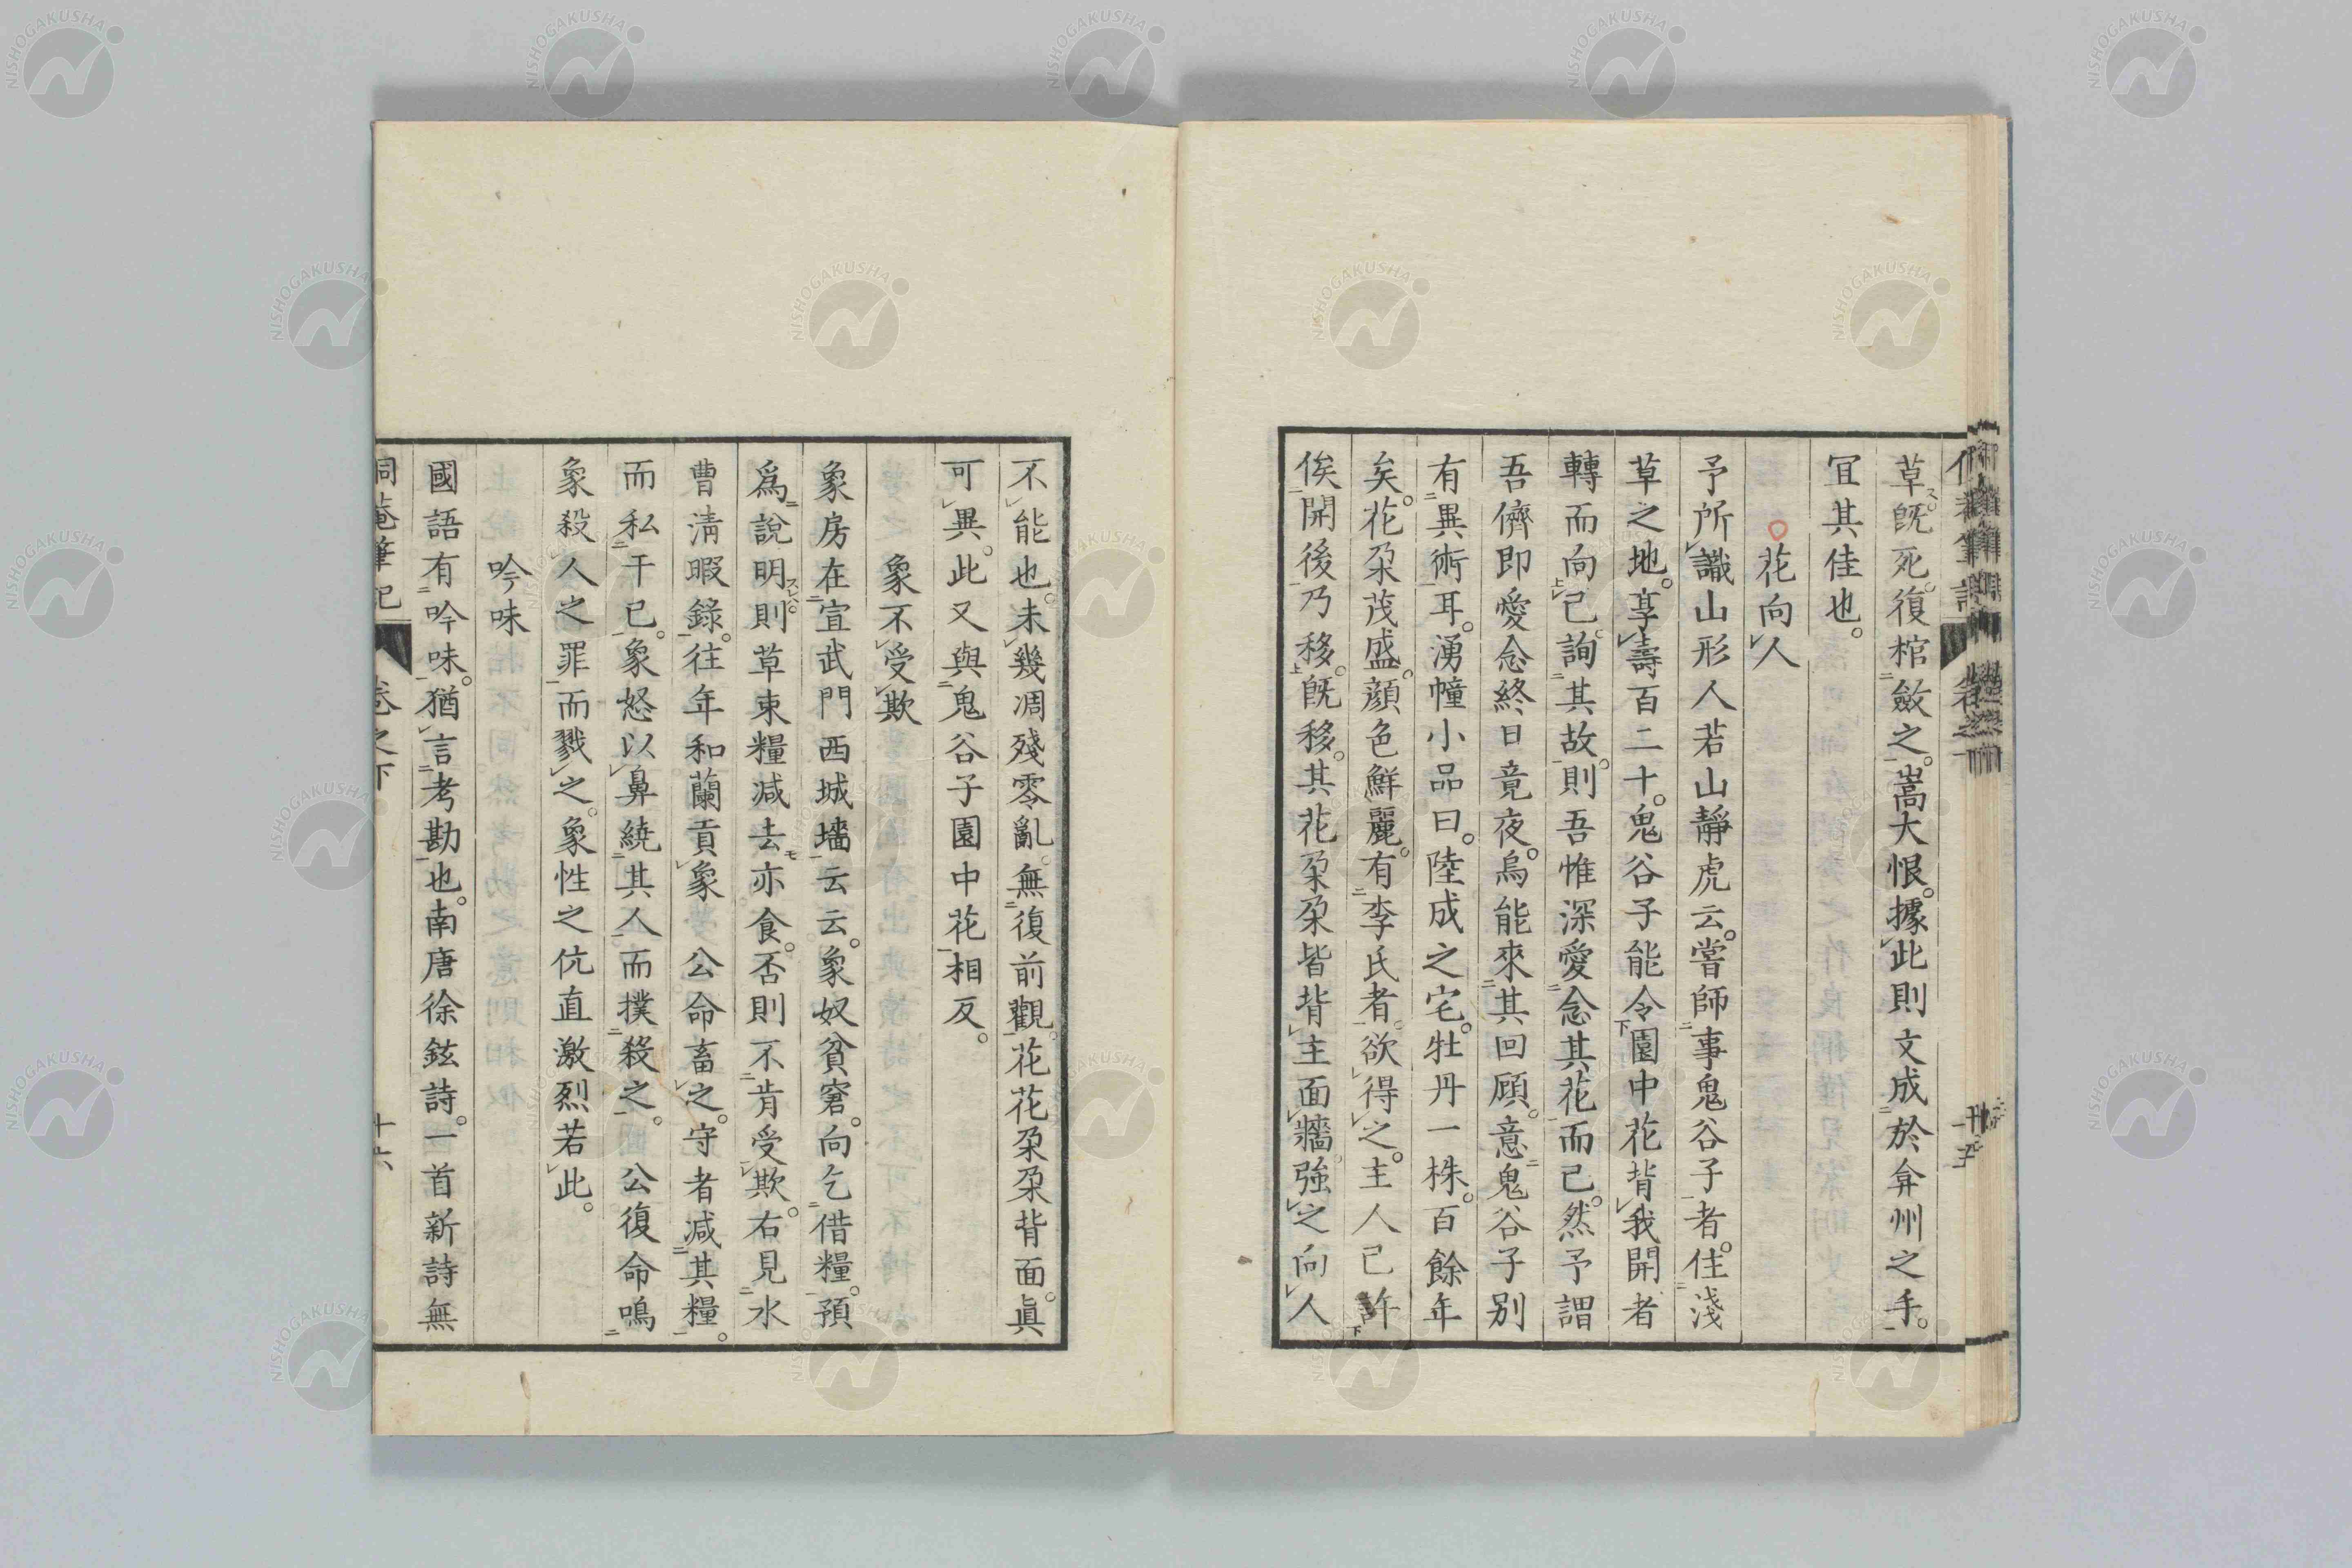 草既死。復棺斂之。嵩大恨。據此則文成於弇州之手。
宜其佳也。
花向人
予所識山形人若山靜虎云。嘗師事鬼谷子者。住淺
草之地。享壽百二十。鬼谷子能令園中花背我開者
轉而向己。詢其故。則吾惟深愛念其花而已。然予謂
吾儕即愛念終日竟夜。烏能來其回顧。意鬼谷子別
有異術耳。湧幢小品曰。陸成之宅。牡丹一株。百餘年
矣。花朶茂盛。顏色鮮麗。有李氏者。欲得之。主人已許
俟開後乃移。既移。其花朶朶皆背主面牆強之向人
不能也。未幾凋殘零亂。無復前觀。花花朶朶背面。眞
可異。此又與鬼谷子園中花相反。
象不受欺
象房在宣武門西城墻云云。象奴貧窘。向乞借糧。預
爲說明則草東糧減去亦食。否則不肯受欺。右見水
曹淸暇錄。往年和蘭貢象　公命畜之。守者減其糧。
而私干已。象怒以鼻繞其人而撲殺之。　公復命鳴
象殺人之罪而戮之。象性之伉直激烈若此。
吟味
國語有吟味。猶言考勘也。南唐徐鉉詩。一首新詩無
侗菴筆記　卷之下　十六
NISHOGAKUSHA